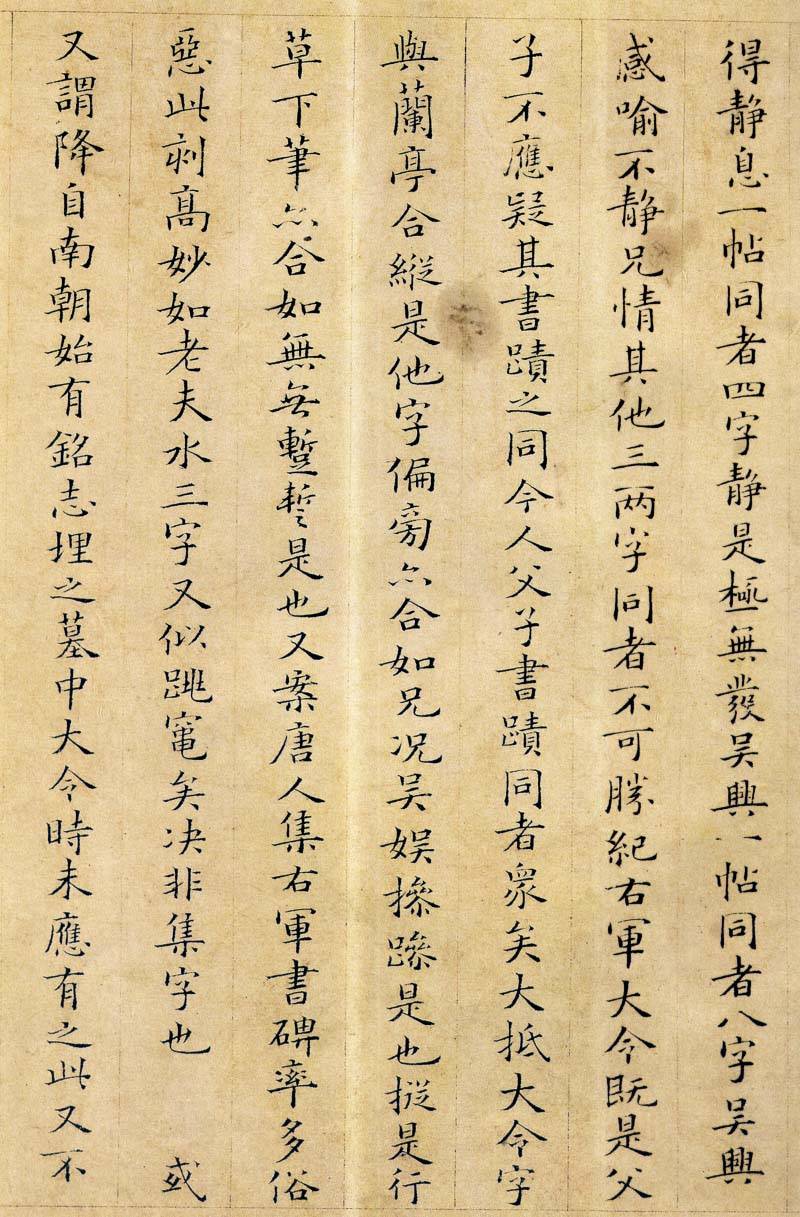 得静息一帖同者四字静是極無發吴興一帖同者八字吴興
感喻不静兄情其他三两字同者不可勝紀右軍大令既是父
子不應疑其書蹟之同今人父子書蹟同者衆矣大抵大令字
與蘭亭合縱是他字偏旁亦合如兄况吴娱摻蹤是也摐是行
草下筆亦合如無㒇蹔誓是也又案唐人集右軍書碑率多俗
惡此刻高妙如老夫水三字又似跳竃矣决非集字也 或
又謂降自南朝始有銘志埋之墓中大令時未應有之此又不